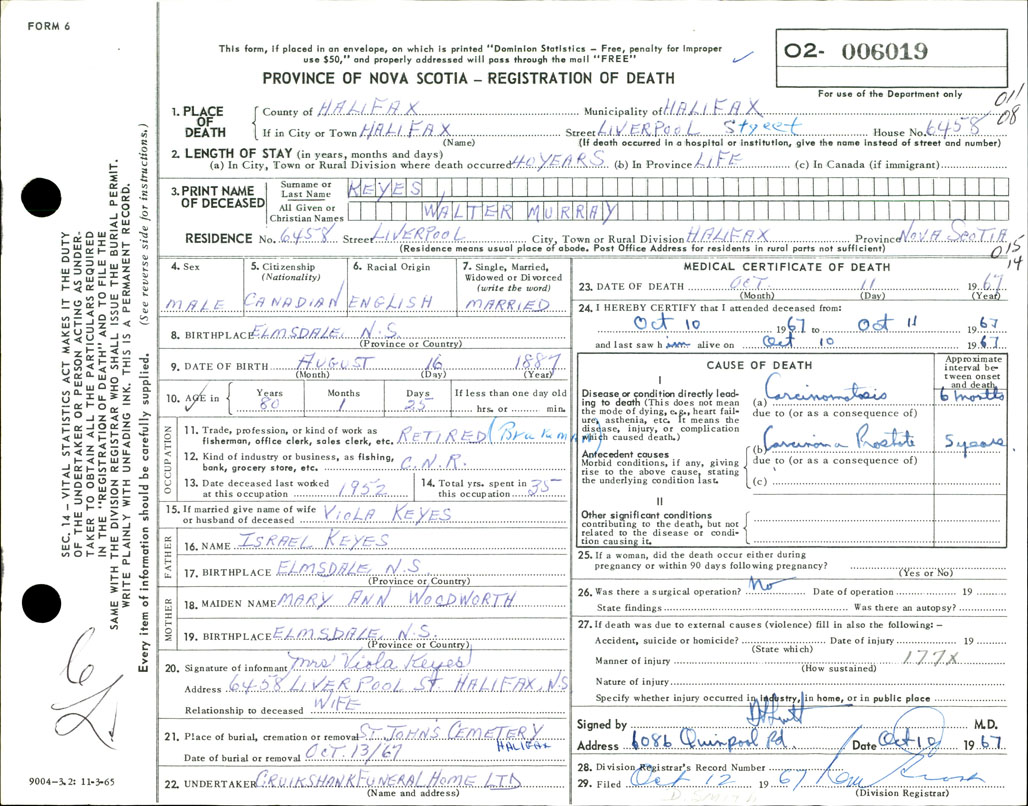 FORM 6
This form, if placed in an envelope, on which is printed "Dominion Statistics – Free, penalty for improper
use $50," and properly addressed will pass through the mail "FREE"
O2- 006019
PROVINCE OF NOVA SCOTIA – REGISTRATION OF DEATH
For use of the Department only
011
08
1. PLACE OF DEATH
County of HALIFAX Municipality of HALIFAX
If in City or Town HALIFAX Street LIVERPOOL Street House No. 6458
(Name) (If death occurred in a hospital or institution, give the name instead of street and number)
2. LENGTH OF STAY (in years, months and days)
(a) In City, Town or Rural Division where death occurred 40 YEARS (b) In Province LIFE (c) In Canada (if immigrant)
3. PRINT NAME OF DECEASED
Surname or Last Name KEYES
All Given or Christian Names WALTER MURRAY
RESIDENCE No. 6458 Street LIVERPOOL City, Town or Rural Division HALIFAX Province NOVA SCOTIA
(Residence means usual place of abode. Post Office Address for residents in rural parts not sufficient)
015
14
4. Sex
MALE
5. Citizenship (Nationality)
CANADIAN
6. Racial Origin
ENGLISH
7. Single, Married, Widowed or Divorced (write the word)
MARRIED
8. BIRTHPLACE ELMSDALE, N.S.
(Province or Country)
9. DATE OF BIRTH AUGUST 16 1887
(Month) (Day) (Year)
10. AGE in Years Months Days If less than one day old
80 1 25 hrs. or min.
OCCUPATION
11. Trade, profession, or kind of work as
fisherman, office clerk, sales clerk, etc. RETIRED
12. Kind of industry or business, as fishing,
bank, grocery store, etc. C.N.R.
13. Date deceased last worked
at this occupation 1952
14. Total yrs. spent in
this occupation 35
15. If married give name of wife
or husband of deceased VIOLA KEYES
FATHER
16. NAME ISRAEL KEYES
17. BIRTHPLACE ELMSDALE, N.S.
(Province or Country)
MOTHER
18. MAIDEN NAME MARY ANN WOODWORTH
19. BIRTHPLACE ELMSDALE, N.S.
(Province or Country)
20. Signature of informant Mrs Viola Keyes
Address 6458 LIVERPOOL ST. HALIFAX, N.S
Relationship to deceased WIFE
21. Place of burial, cremation or removal ST. JOHN'S CEMETERY
HALIFAX
Date of burial or removal OCT. 13/67
22. UNDERTAKER CRUIKSHANK FUNERAL HOME LTD
(Name and address)
MEDICAL CERTIFICATE OF DEATH
23. DATE OF DEATH OCT. 11 1967
(Month) (Day) (Year)
24. I HEREBY CERTIFY that I attended deceased from:
Oct 10 1967 to Oct 11 1967
and last saw him alive on Oct 10 1967
CAUSE OF DEATH
Approximate interval between onset and death
I
Disease or condition directly leading to death (This does not mean the mode of dying, e.g., heart failure, asthenia, etc. It means the disease, injury, or complication which caused death.)
(a) Carcinomatosis 6 months
due to (or as a consequence of)
Antecedent causes
Morbid conditions, if any, giving rise to the above cause, stating the underlying condition last.
(b) Carcinoma Prostate 5 years
due to (or as a consequence of)
(c)
II
Other significant conditions
contributing to the death, but not related to the disease or condition causing it.
25. If a woman, did the death occur either during
pregnancy or within 90 days following pregnancy?
(Yes or No)
26. Was there a surgical operation? No Date of operation 19
State findings Was there an autopsy?
27. If death was due to external causes (violence) fill in also the following: –
Accident, suicide or homicide? Date of injury 19
(State which)
Manner of injury 177X
(How sustained)
Nature of injury
Specify whether injury occurred in industry, in home, or in public place
Signed by M.D.
Address 6086 Quinpool Rd. Date Oct 10 1967
28. Division Registrar's Record Number
29. Filed Oct 12 1967
(Division Registrar)
SEC. 14 – VITAL STATISTICS ACT MAKES IT THE DUTY
OF THE UNDERTAKER OR PERSON ACTING AS UNDER-
TAKER TO OBTAIN ALL THE PARTICULARS REQUIRED
IN THE "REGISTRATION OF DEATH" AND TO FILE THE
SAME WITH THE DIVISION REGISTRAR WHO SHALL ISSUE THE BURIAL PERMIT.
WRITE PLAINLY WITH UNFADING INK. THIS IS A PERMANENT RECORD.
Every item of information should be carefully supplied. (See reverse side for instructions.)
9004-3.2: 11-3-65